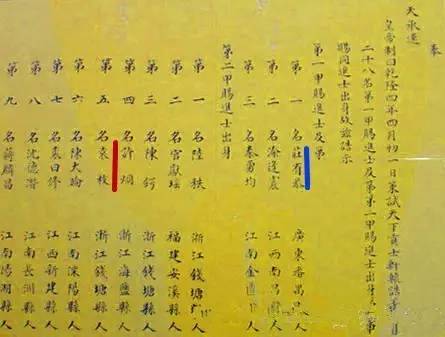 奉
天承運
皇帝制曰乾隆四年四月初一日策試天下貢士軒轅誥等
二十八名第一甲賜進士及第第二甲賜進士出身第
賜同進士出身故茲誥示
第一甲賜進士及第
第一名莊有恭 廣東番禺縣人
第二名涂逢震 江西南昌縣人
第三名秦勇均 江南金匱縣人
第二甲賜進士出身
第一名陸秩 浙江錢塘 人
第二名官獻瑤 福建安溪縣人
第三名陳 浙江錢塘縣人
第四名許烱 浙江海鹽縣人
第五名袁枚 浙江錢塘縣人
第六名陳大睔 江南溧陽縣人
第七名裘曰修 江西新建縣人
第八名沈德潛 江南長洲縣人
第九名蔣麟昌 江南陽湖縣人